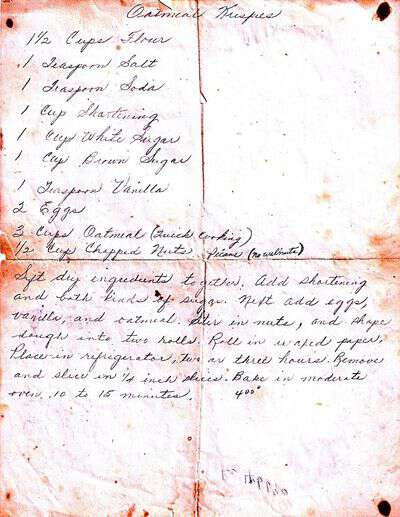 Oatmeal Krispies
1½ Cups Flour
1 Teaspoon Salt
1 Teaspoon Soda
1 Cup Shortening
1 Cup White Sugar
1 Cup Brown Sugar
1 Teaspoon Vanilla
2 Eggs
3 Cups Oatmeal (Quick Cooking)
1/2 Cup Chopped Nuts - Pecans (no walnuts)
Sift dry ingredients together. Add shortening
and both kinds of sugar. Next add eggs,
vanilla, and oatmeal. Stir in nuts, and shape
dough into two rolls. Roll in waxed paper,
Place in refrigerator, two or three hours. Remove
and slice in ¼ inch slices. Bake in moderate
oven. 10 to 15 minutes. 400°